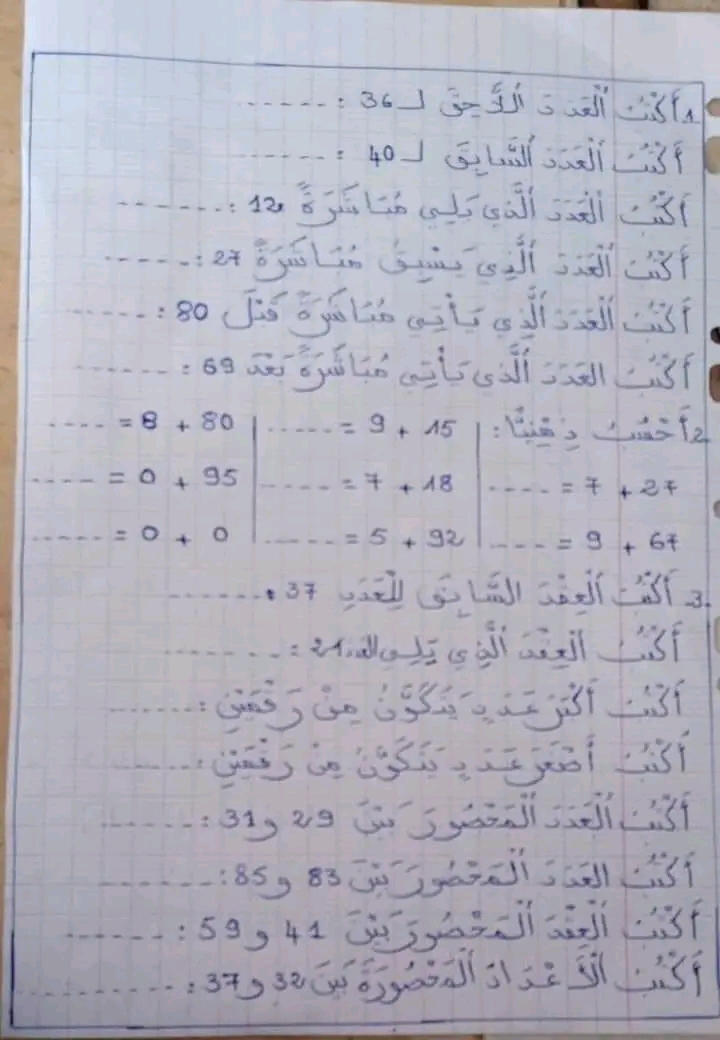 1. أَكْتُبُ ٱلْعَدَدَ ٱللَّاحِقَ لـ 36 : ......
أَكْتُبُ ٱلْعَدَدَ ٱلسَّابِقَ لـ 40 : ......
أَكْتُبُ ٱلْعَدَدَ ٱلَّذِي يَلِي مُبَاشَرَةً 12 : ......
أَكْتُبُ ٱلْعَدَدَ ٱلَّذِي يَسْبِقُ مُبَاشَرَةً 27 : ......
أَكْتُبُ ٱلْعَدَدَ ٱلَّذِي يَأْتِي مُبَاشَرَةً قَبْلَ 80 : ......
أَكْتُبُ العَدَدَ ٱلَّذِي يَأْتِي مُبَاشَرَةً بَعْدَ 69 : ......
2. أَحْسُبُ ذِهْنِيًّا : | 15 + 9 = ...... | 80 + 8 = ....
27 + 7 = .... | 18 + 7 = ..... | 95 + 0 = ....
67 + 9 = .... | 92 + 5 = ...... | 0 + 0 = .....
3. أَكْتُبُ ٱلْعِقْدَ السَّابِقَ لِلْعَدَدِ 37 : ......
أَكْتُبُ ٱلْعِقْدَ ٱلَّذِي يَلِي 21 : ......
أَكْتُبُ أَكْبَرَ عَدَدٍ يَتَكَوَّنُ مِنْ رَقْمَيْنِ : ......
أَكْتُبُ أَصْغَرَ عَدَدٍ يَتَكَوَّنُ مِنْ رَقْمَيْنِ : ......
أَكْتُبُ ٱلْعَدَدَ ٱلْمَحْصُورَ بَيْنَ 29 و 31 : ......
أَكْتُبُ العَدَدَ ٱلْمَحْصُورَ بَيْنَ 83 و 85 : ......
أَكْتُبُ ٱلْعِقْدَ ٱلْمَحْصُورَ بَيْنَ 41 و 59 : ......
أَكْتُبُ ٱلْأَعْدَادَ ٱلْمَحْصُورَةَ بَيْنَ 32 و 37 : ......